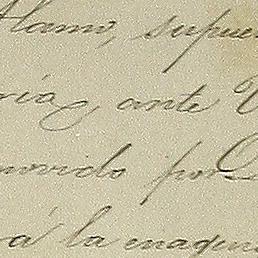 Alamo, supue
ría ante V
movido por
á la enagen